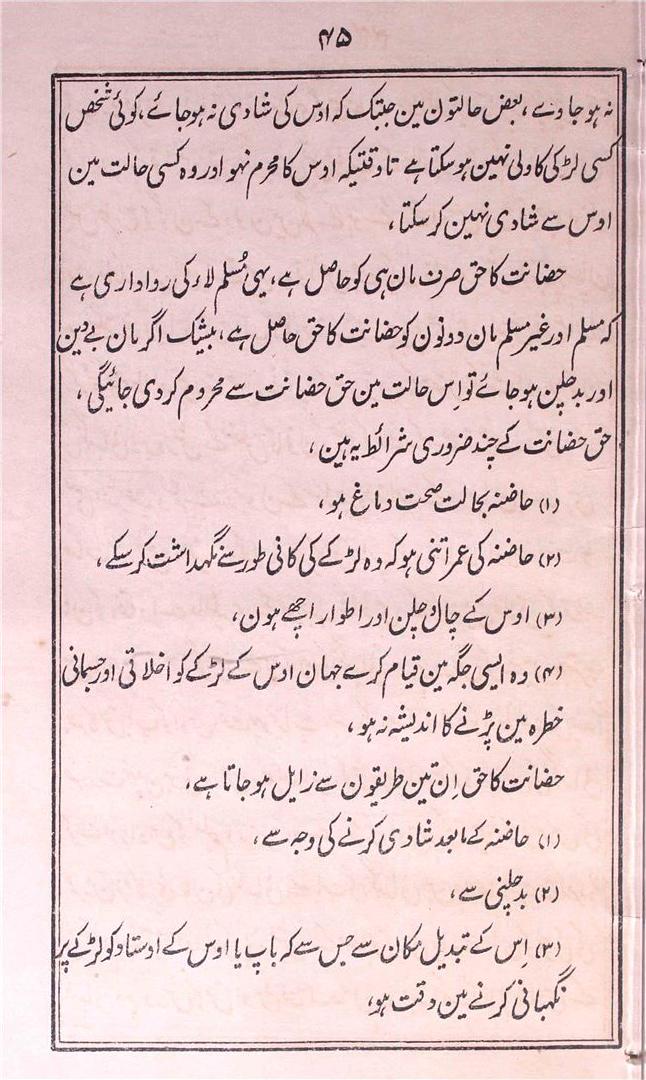 ۴۵
نہ ہو جاوے، بعض حالتون مین جبتک کہ اوس کی شادی نہ ہو جائے، کوئی شخص
کسی لڑکی کا ولی نہین ہو سکتا ہے تا وقتیکہ اوس کا محرم نہو اور وہ کسی حالت مین
اوس سے شادی نہین کر سکتا،
حضانت کا حق صرف مان ہی کو حاصل ہے، یہی مُسلم لاء کی رواداری ہے
کہ مسلم اور غیر مسلم مان دونون کو حضانت کا حق حاصل ہے، بیشک اگر مان بے دین
اور بد چلپن ہو جائے تو اِس حالت مین حق حضانت سے محروم کر دی جائیگی،
حق حضانت کے چند ضروری شرائط یہ ہین،
(۱) حاضنہ بحالت صحت دماغ ہو،
(۲) حاضنہ کی عمر اتنی ہو کہ وہ لڑکے کی کافی طور سے نگہداشت کر سکے،
(۳) اوس کے چال و چلپن اور اطوار اچھے ہون،
(۴) وہ ایسی جگہ مین قیام کرے جہان اوس کے لڑکے کو اخلاقی اور جسمانی
خطرہ مین پڑنے کا اندیشہ نہ ہو،
حضانت کا حق اِن تین طریقون سے زایل ہو جاتا ہے،
(۱) حاضنہ کے مابعد شادی کرنے کی وجہ سے،
(۲) بد چلپنی سے،
(۳) اِس کے تبدیل مکان سے جس سے کہ باپ یا اوس کے اوستاد کو لڑکے پر
نگہبانی کرنے مین دقت ہو،